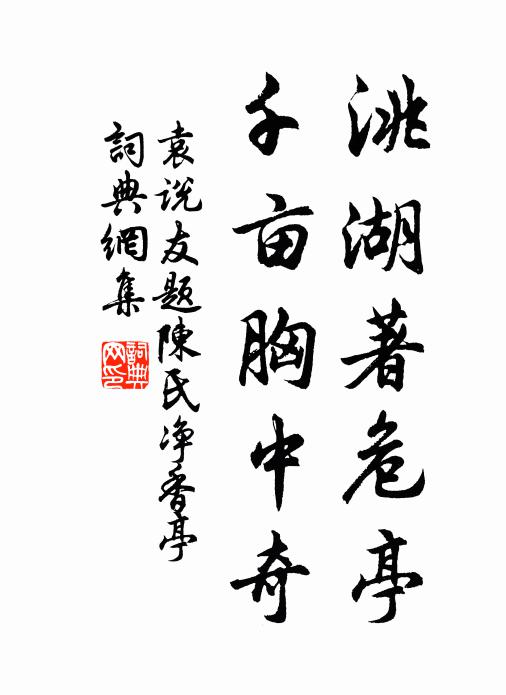 洮湖著危亭
千亩胸中奇
袁说友题陳氏净香亭
詞典網集
詞典网印